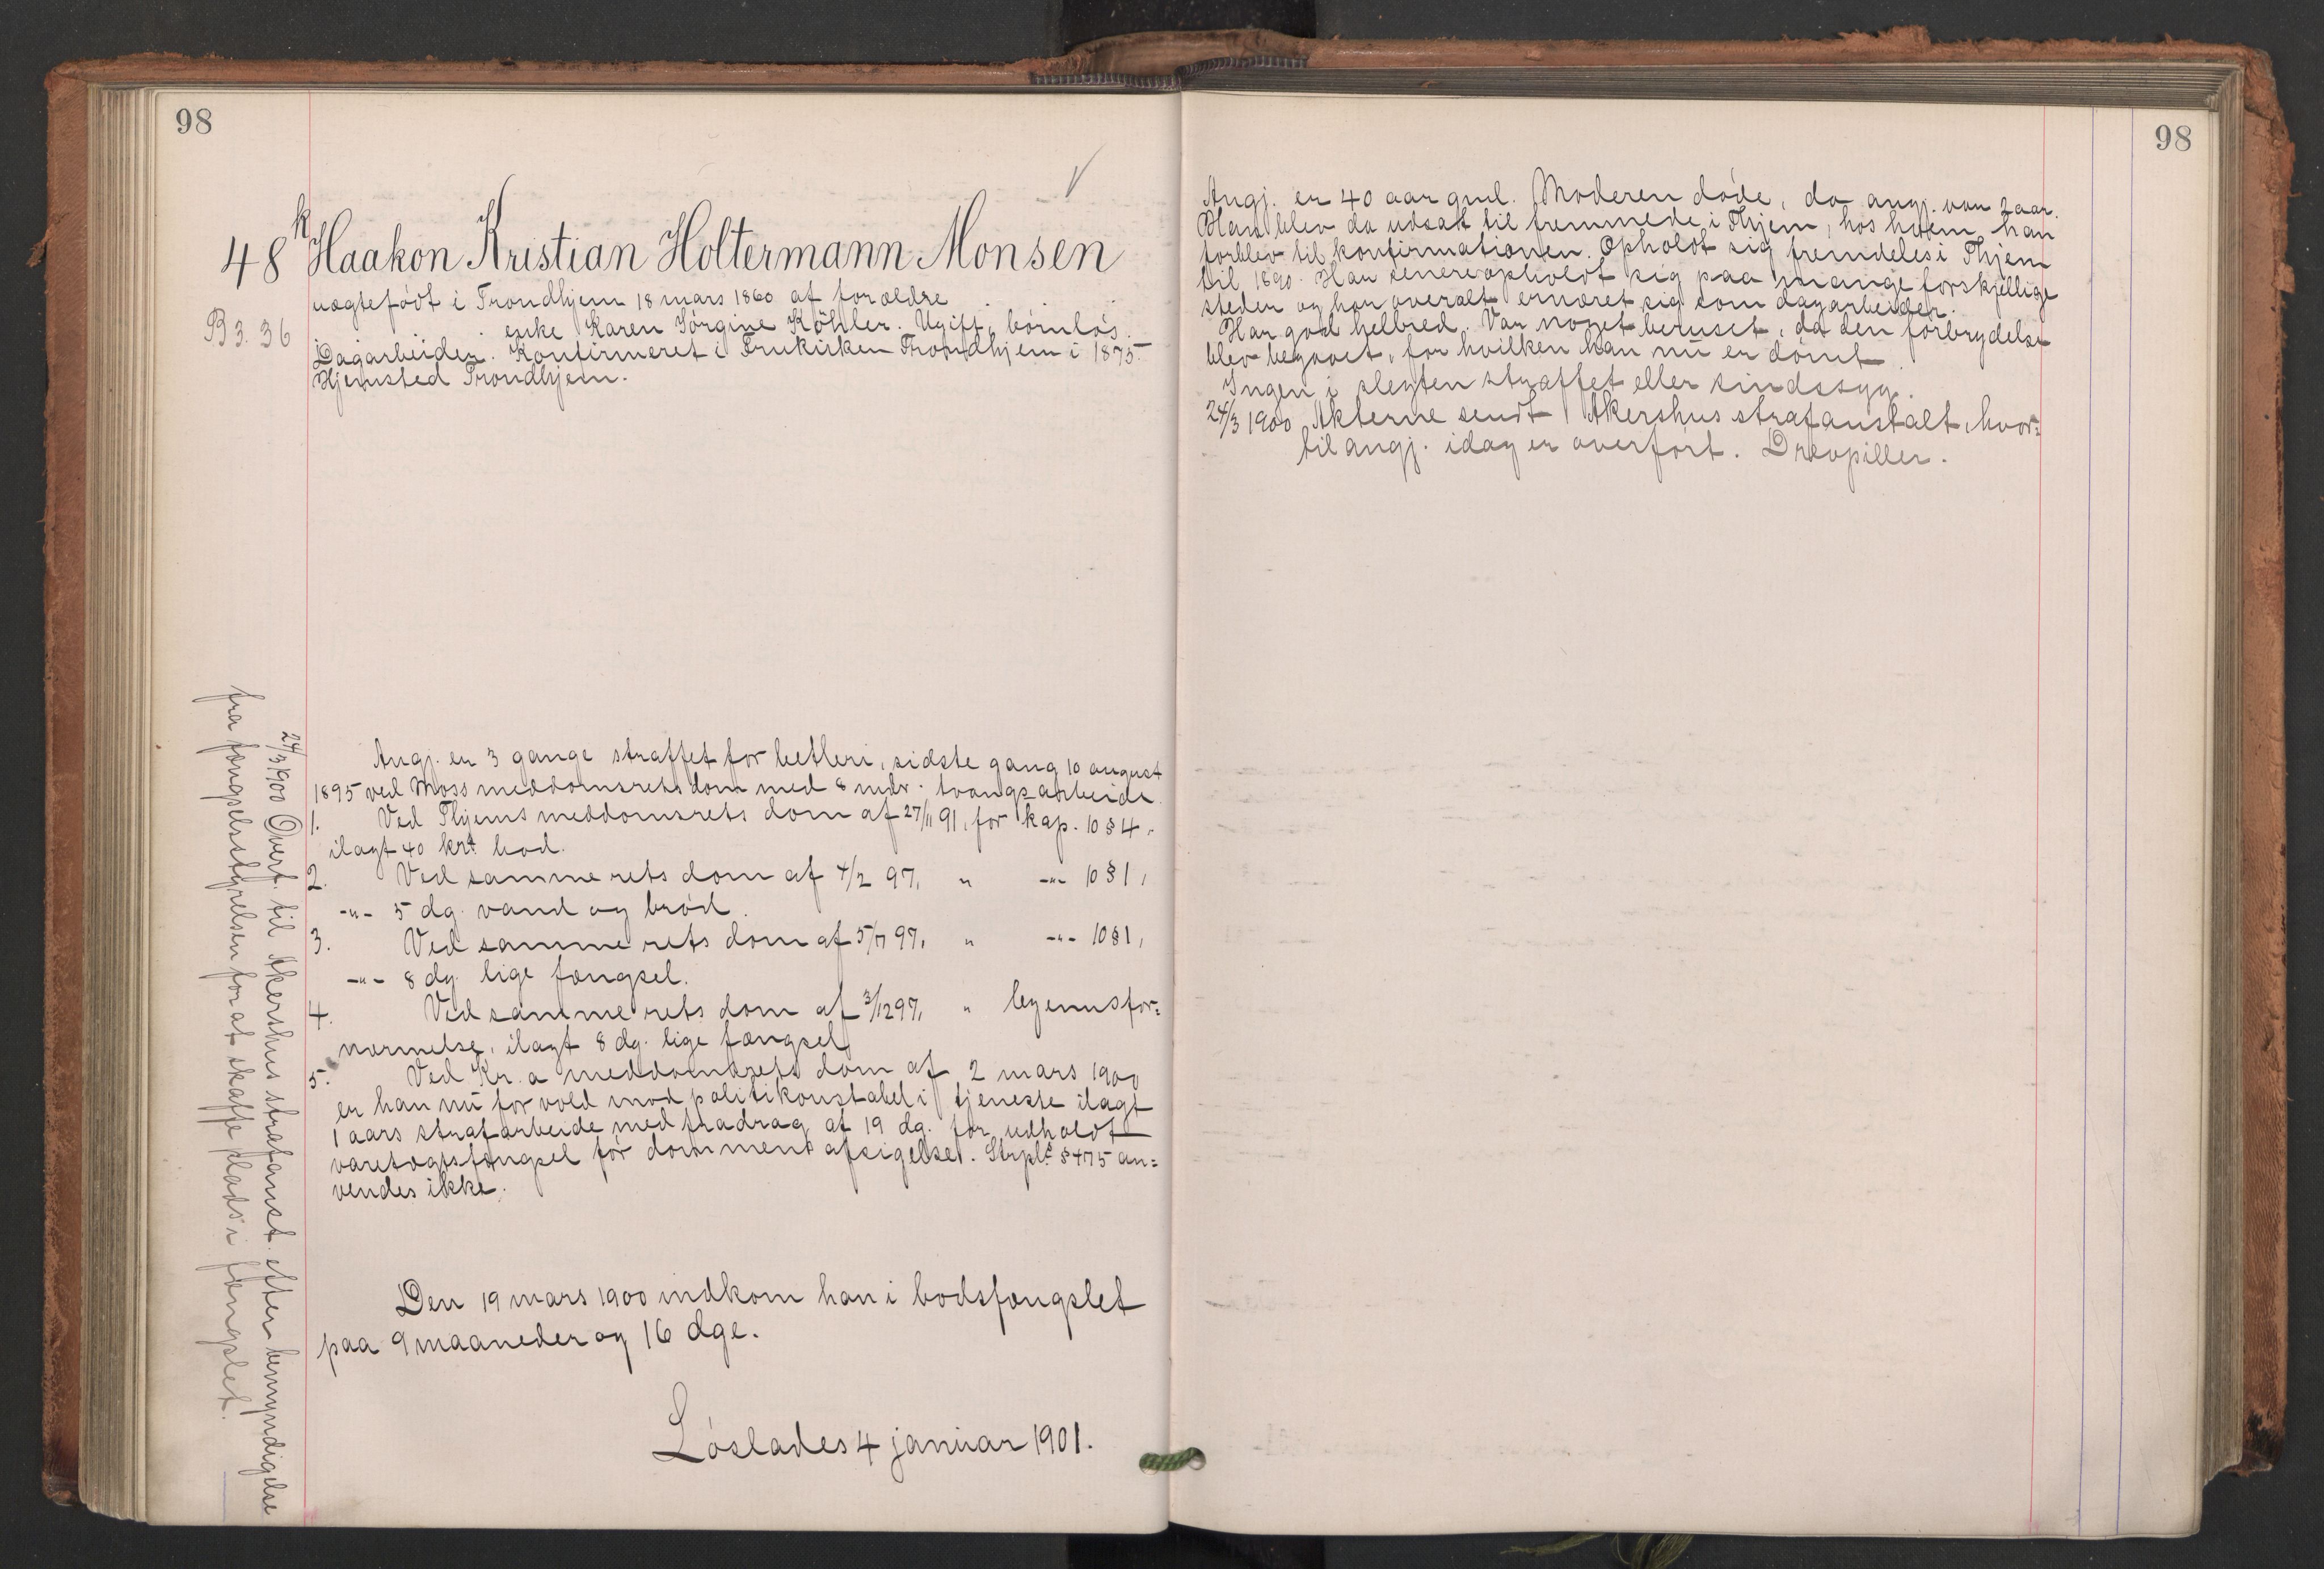 98
48 k Haakon Kristian Holtermann Monsen
uægtefødt i Trondhjem 18 mars 1860 af forældre
enke Karen Jørgine Köhler. Ugift, børnløs.
B 3. 36
Dagarbeider. Konfirmeret i Fruekirken Trondhjem i 1875.
Hjemsted Trondhjem.
Angj. er 3 gange straffet for betleri, sidste gang 10 august
1895 ved Moss meddomsrets dom med 8 mdr. tvangsarbeide.
1. Ved Thjems meddomsrets dom af 27/11 91, for kap. 10 § 4,
ilagt 40 krs bod.
2. Ved samme rets dom af 4/2 97, " -"- 10 § 1,
-"- 5 dg. vand og brød.
3. Ved samme rets dom af 5/7 97, " -"- 10 § 1,
-"- 8 dg. lige fængsel.
4. Ved samme rets dom af 3/12 97, " legemsfor=
nærmelse, ilagt 8 dg. lige fængsel.
5. Ved Kr.a meddomsrets dom af 2 mars 1900
er han nu for vold mod politikonstabel i tjeneste ilagt
1 aars strafarbeide med fradrag af 19 dg. for udholdt
varetægtsfængsel før dommens afsigelse. Strpl. § 475 an=
vendes ikke.
Den 19 mars 1900 indkom han i bodsfængslet
paa 9 maaneder og 16 dge.
Løslades 4 januar 1901.
24/3 1900 Overf. til Akershus strafanst. efter bemyndigelse
fra fængselsstyrelsen for at skaffe plads i fængslet.
98
Angj. er 40 aar gml. Moderen døde, da angj. var 2 aar.
Han blev da udsat til fremmede i Thjem, hos hvem han
forblev til konfirmationen. Opholdt sig fremdeles i Thjem
til 1890. Har senere opholdt sig paa mange forskjellige
steder og har overalt ernæret sig som dagarbeider.
Har god helbred. Var noget beruset, da den forbrydelse
blev begaaet, for hvilken han nu er dømt.
Ingen i slegten straffet eller sindssyg.
24/3 1900 Akterne sendt Akershus strafanstalt, hvor=
til angj. idag er overført. Drevpiller.